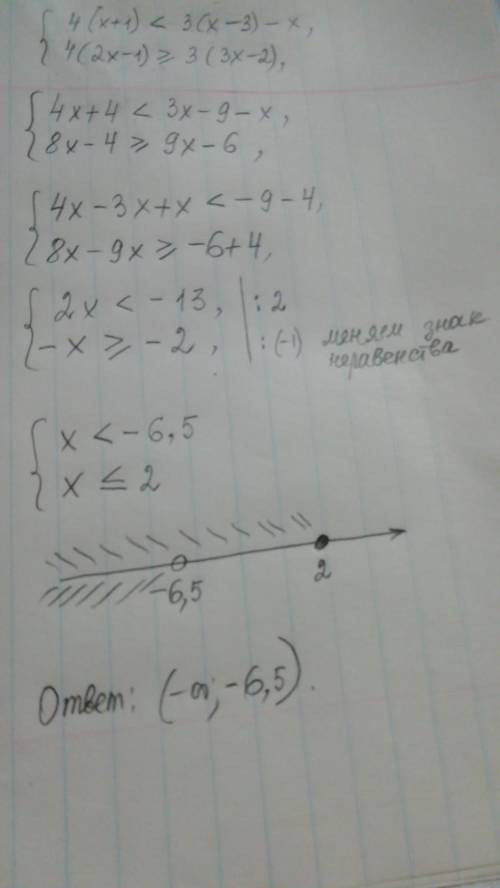 4(x+1) < 3(x-3)-x,
4(2x-1) ≥ 3(3x-2),
4x+4 < 3x-9-x,
8x-4 ≥ 9x-6,
4x-3x+x < -9-4,
8x-9x ≥ -6+4,
2x < -13, | : 2
-x ≥ -2, | : (-1) меняем знак
неравенства
x < -6,5
x ≤ 2
-6,5 2
Ответ: (-∞; -6,5).